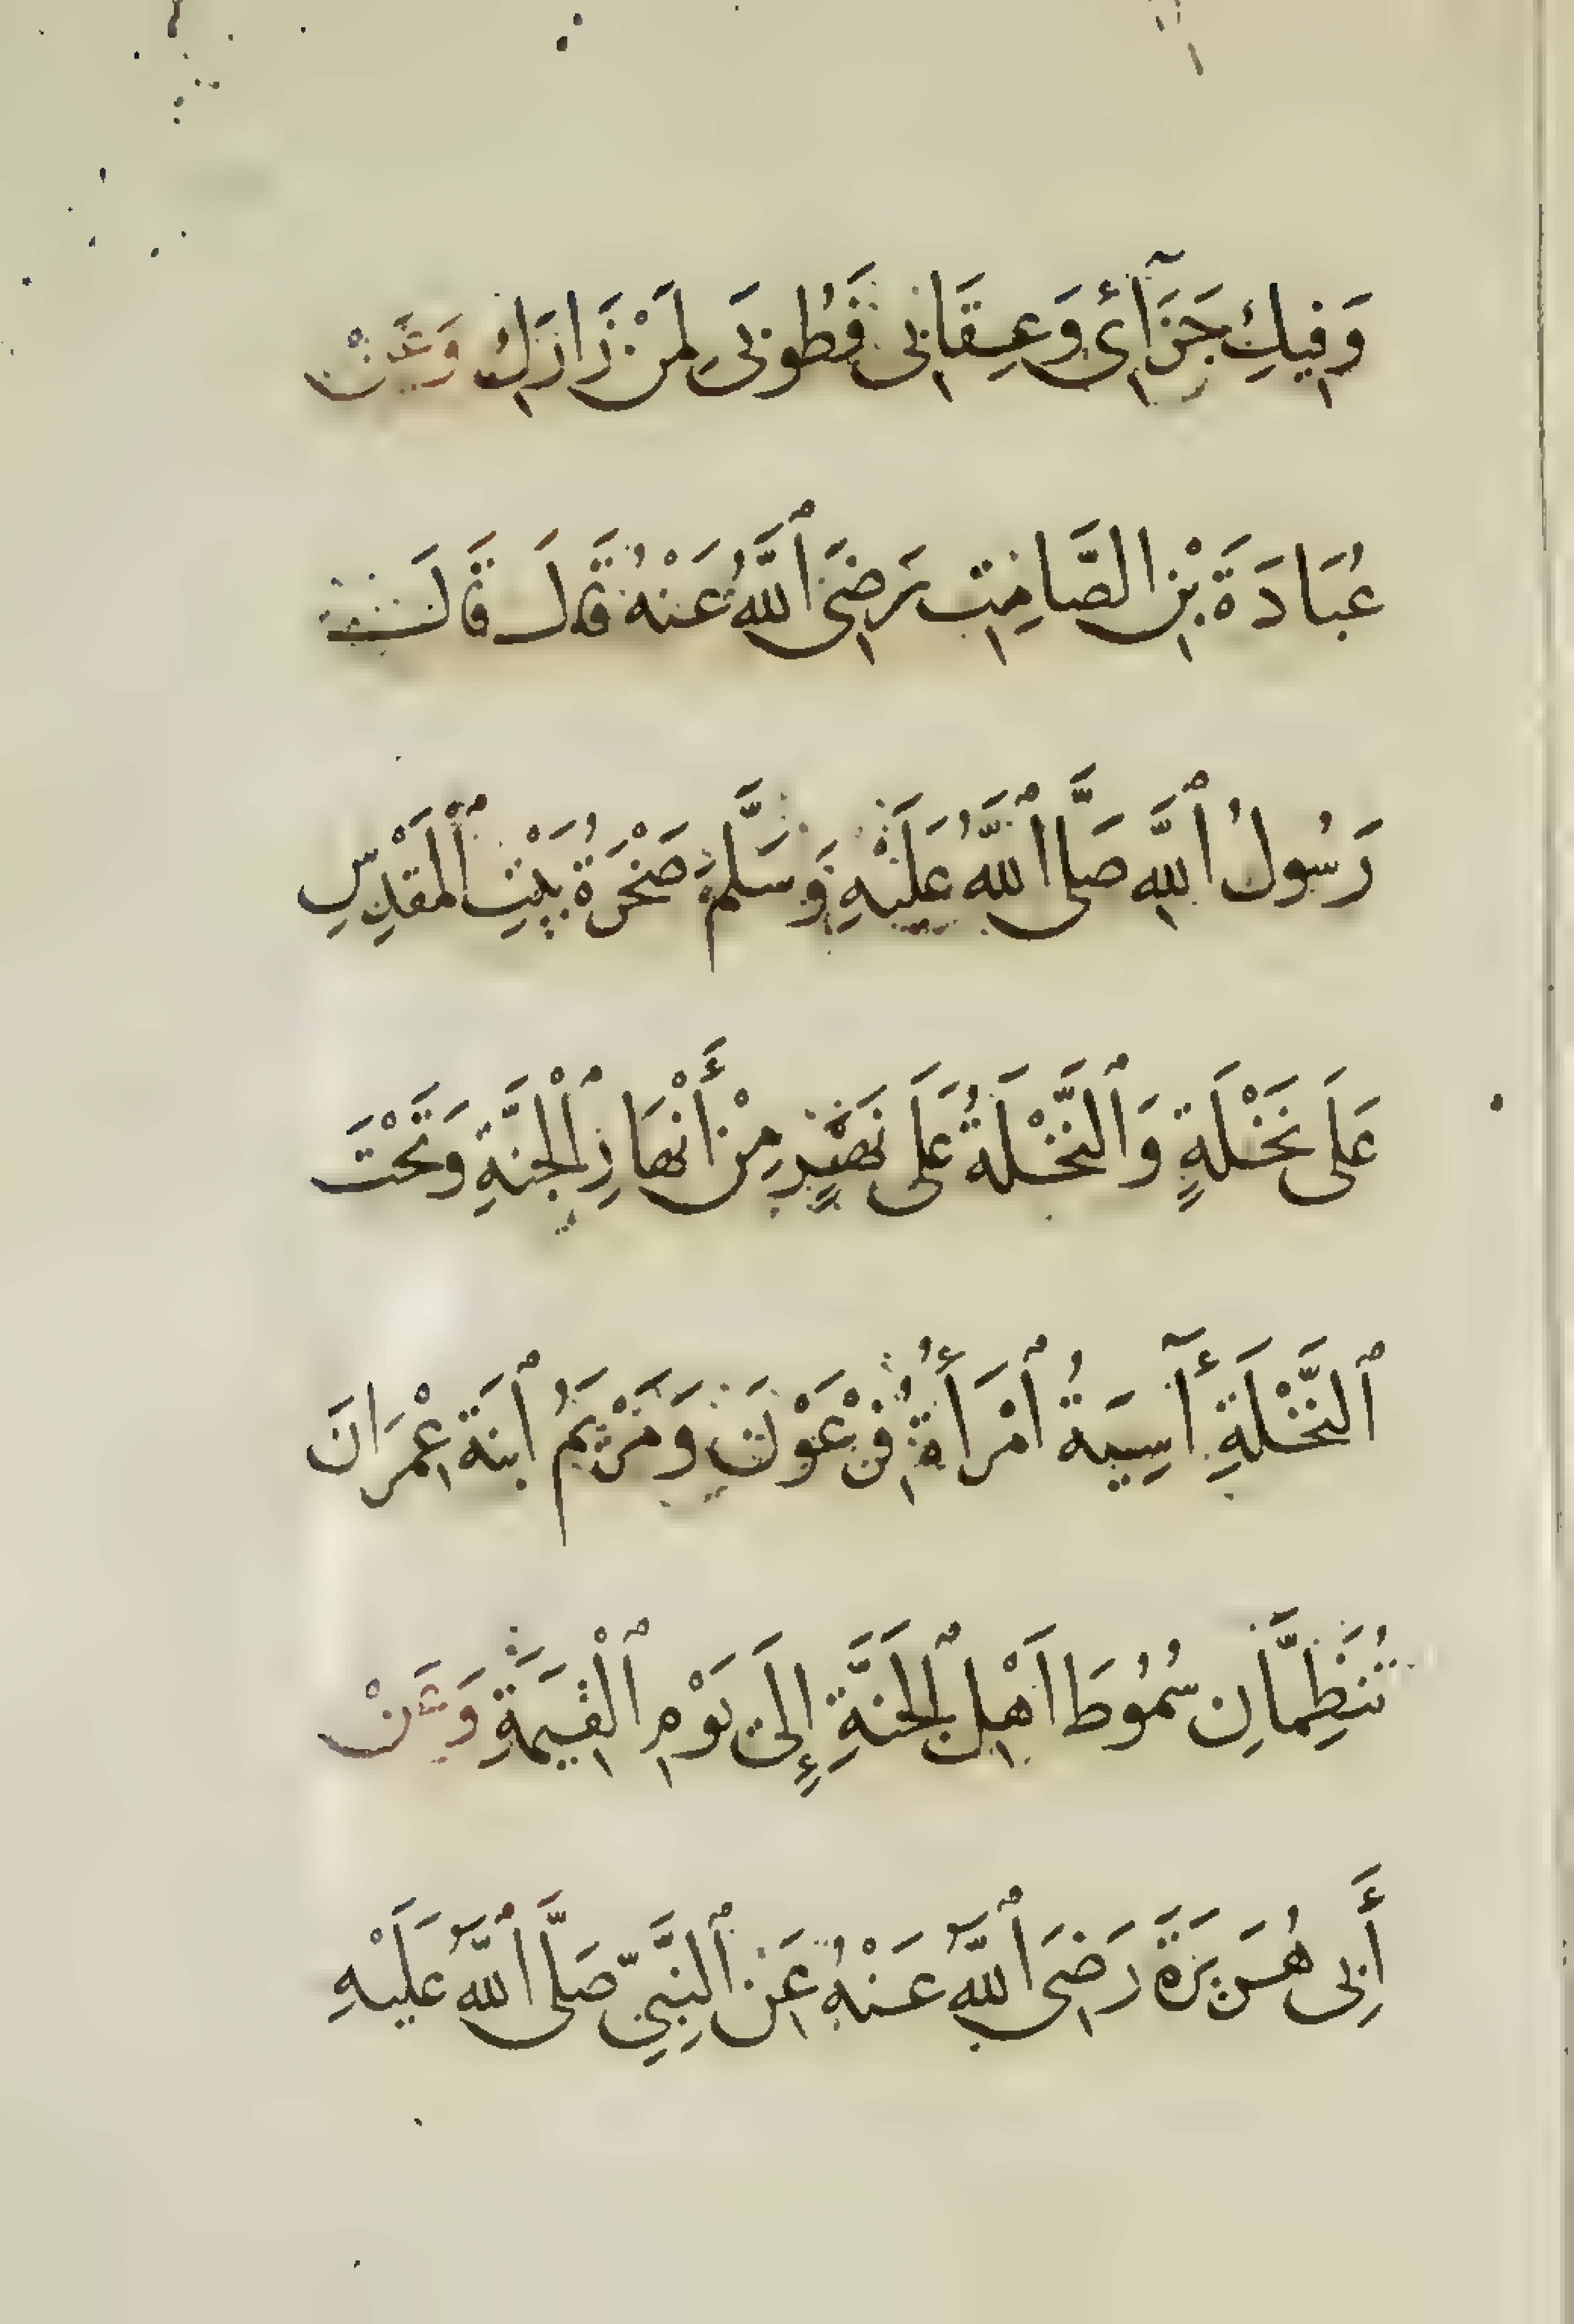 وَفِيكِ جَزَآئِي وَعِقَابِى فَطُوبَى لِمَنْ زَارَكِ وَعَنْ
عُبَادَةَ بْنِ الصَّامِتِ رَضِىَ ٱللَّهُ عَنْهُ قَالَ قَالَ
رَسُولُ ٱللَّهِ صَلَّى ٱللَّهُ عَلَيْهِ وَسَلَّمَ صَخْرَةُ بَيْتِ ٱلْمَقْدِسِ
عَلَى نَخْلَةٍ وَٱلنَّخْلَةُ عَلَى نَهَرٍ مِنْ أَنْهَارِ ٱلْجَنَّةِ وَتَحْتَ
ٱلنَّخْلَةِ أٓسِيَةُ ٱمْرَأَةُ فِرْعَوْنَ وَمَرْيَمُ ٱبْنَةَ عِمْرَانَ
تُنَظِّمَانِ سُمُوطَ اَهْلِ ٱلْجَنَّةِ إِلَى يَوْمِ ٱلْقِيَمَةِ وَعَنْ
أَبِى هُرَيْرَةَ رَضِىَ ٱللَّهُ عَنْهُ عَنِ ٱلنَّبِىِّ صَلَّى ٱللَّهُ عَلَيْهِ